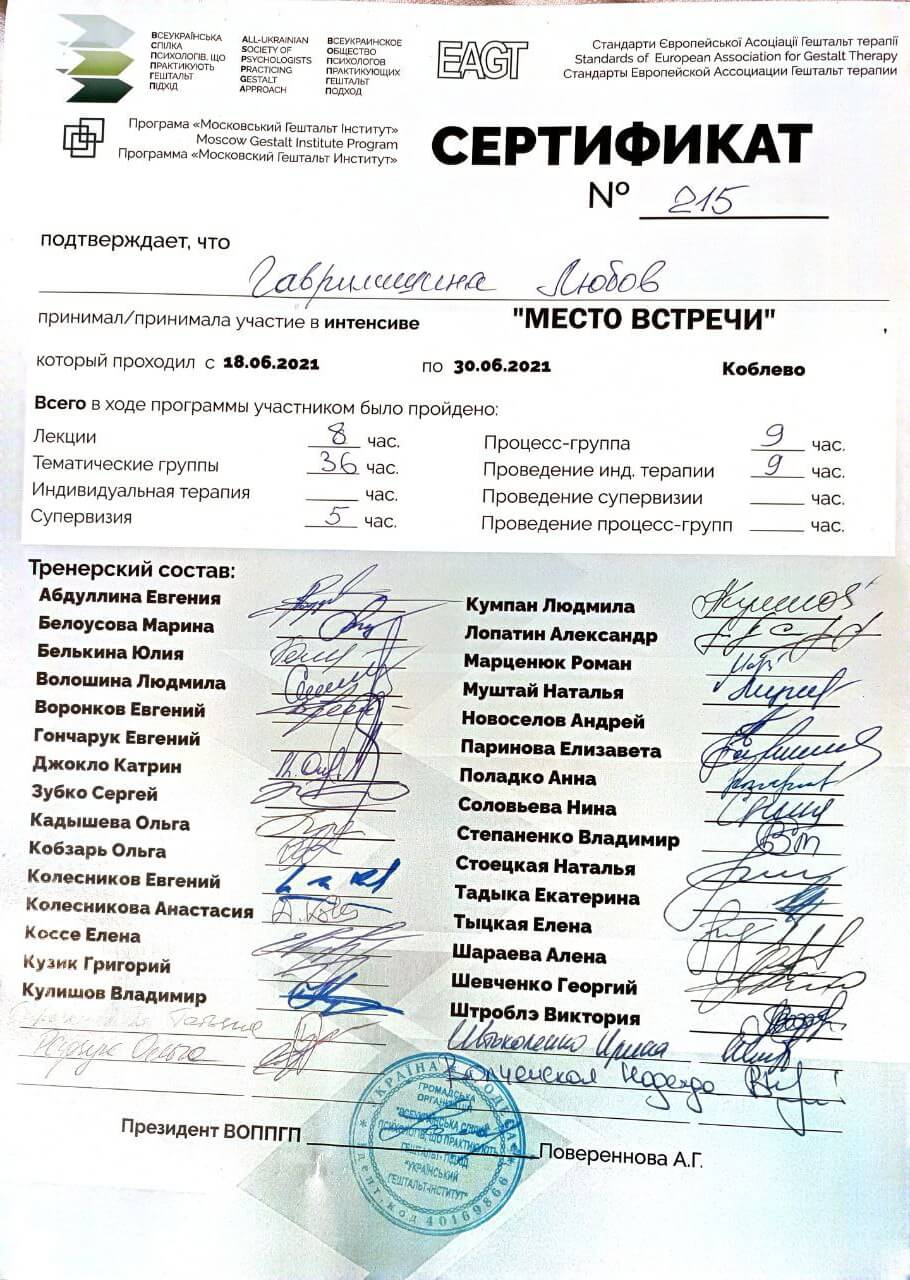 ВСЕУКРАЇНСЬКА
СПІЛКА
ПСИХОЛОГІВ, ЩО
ПРАКТИКУЮТЬ
ГЕШТАЛЬТ
ПІДХІД
ALL-UKRAINIAN
SOCIETY OF
PSYCHOLOGISTS
PRACTICING
GESTALT
APPROACH
ВСЕУКРАИНСКОЕ
ОБЩЕСТВО
ПСИХОЛОГОВ
ПРАКТИКУЮЩИХ
ГЕШТАЛЬТ
ПОДХОД
EAGT
Стандарти Європейської Асоціації Гештальт терапії
Standards of European Association for Gestalt Therapy
Стандарты Европейской Ассоциации Гештальт терапии
Програма «Московський Гештальт Інститут»
Moscow Gestalt Institute Program
Программа «Московский Гештальт Институт»
СЕРТИФИКАТ
№ 215
подтверждает, что
Гаврилишина Любов
принимал/принимала участие в интенсиве "МЕСТО ВСТРЕЧИ" ,
который проходил с 18.06.2021 по 30.06.2021 Коблево
Всего в ходе программы участником было пройдено:
Лекции 8 час.
Тематические группы 36 час.
Индивидуальная терапия час.
Супервизия 5 час.
Процесс-группа 9 час.
Проведение инд. терапии 9 час.
Проведение супервизии час.
Проведение процесс-групп час.
Тренерский состав:
Абдуллина Евгения
Белоусова Марина
Белькина Юлия
Волошина Людмила
Воронков Евгений
Гончарук Евгений
Джокло Катрин
Зубко Сергей
Кадышева Ольга
Кобзарь Ольга
Колесников Евгений
Колесникова Анастасия
Коссе Елена
Кузик Григорий
Кулишов Владимир
Татьяна
Ольга
Кумпан Людмила
Лопатин Александр
Марценюк Роман
Муштай Наталья
Новоселов Андрей
Паринова Елизавета
Поладко Анна
Соловьева Нина
Степаненко Владимир
Стоецкая Наталья
Тадыка Екатерина
Тыцкая Елена
Шараева Алена
Шевченко Георгий
Штроблэ Виктория
Ирина
Надежда
Президент ВОППГП Повереннова А.Г.
УКРАЇНА ОДЕСА
ГРОМАДСЬКА
ОРГАНІЗАЦІЯ
"ВСЕУКРАЇНСЬКА СПІЛКА
ПСИХОЛОГІВ, ЩО ПРАКТИКУЮТЬ
ГЕШТАЛЬТ-ПІДХІД
"УКРАЇНСЬКИЙ
ГЕШТАЛЬТ-ІНСТИТУТ"
Ідент. код 40169866